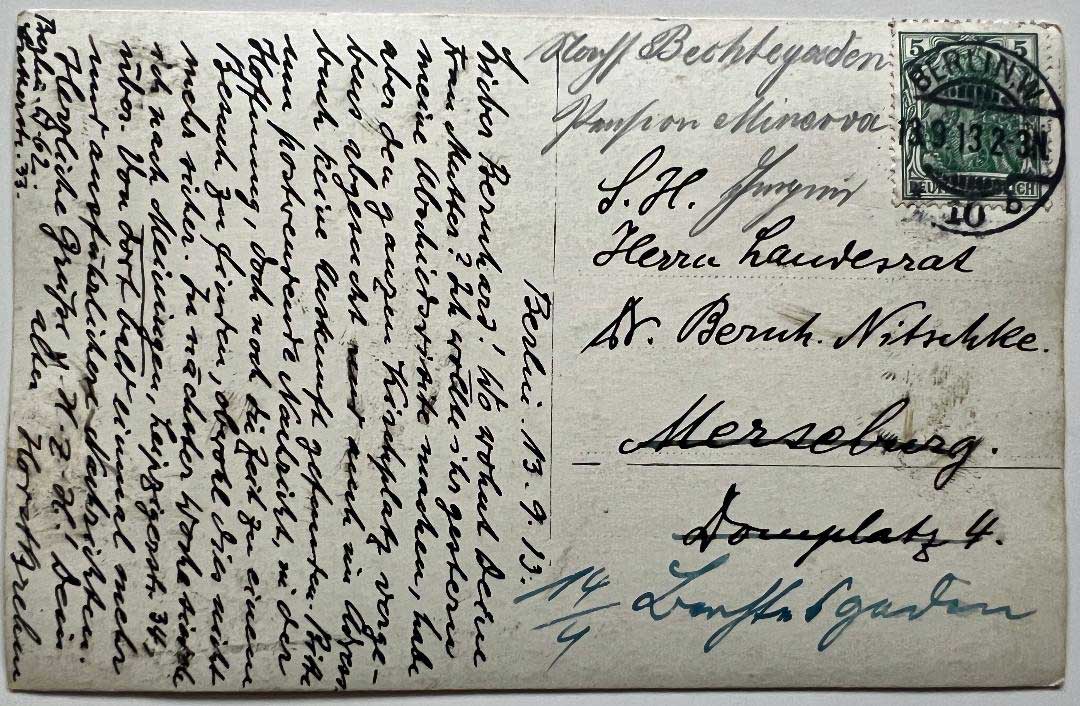 Berlin. 13. 9. 13.
Lieber Bernhard! Wo wohnt Deine
Frau Mutter? Ich wollte ihr gestern
meine Abschiedsvisite machen, habe
aber den ganzen Kirchplatz verge-
bens abgesucht und auch im Adress-
buch keine Auskunft gefunden. Bitte
um postwendende Nachricht, in der
Hoffnung, doch noch die Zeit zu einem
Besuch zu finden, obwohl dies nicht
mehr sicher. In nächster Woche siedle
ich nach Meiningen, Leipzigerstr. 34,
über. Von dort bald einmal mehr
und ausführlichere Nachrichten.
Herzliche Grüße Dein
alter Horst
Berlin W 62.
33.
Bechtegaden
Pension Minerva
S. H.
Herrn Landesrat
Dr. Bernh. Nitschke.
Merseburg.
Domplatz 4.
14/9
5 5
DEUTSCHES REICH
BERLIN.W.
13.9 13.2-3N
10 b